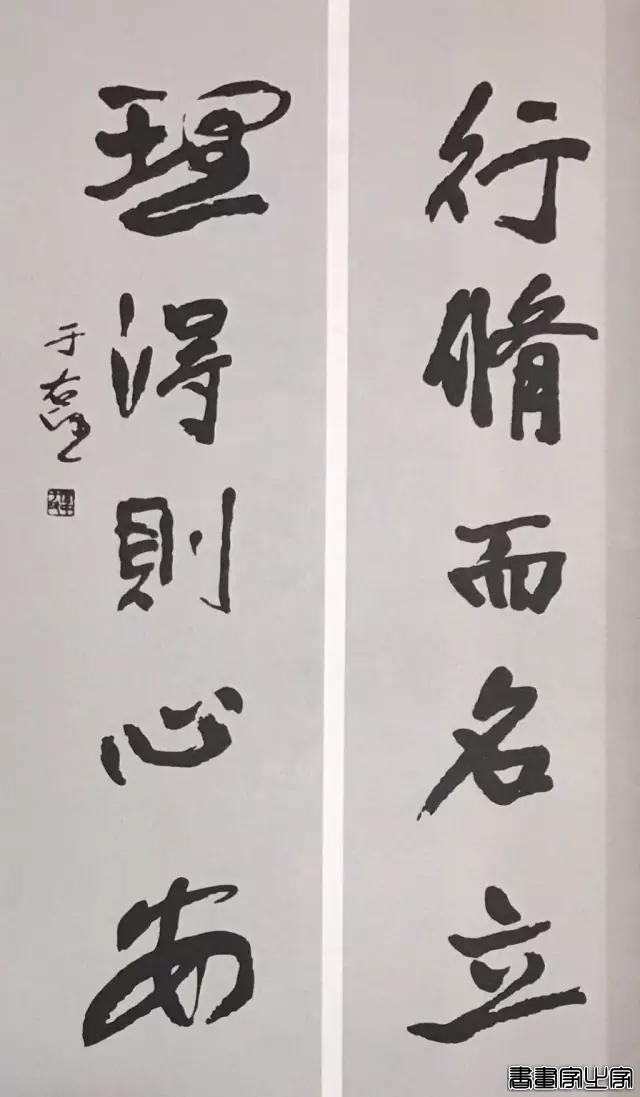 行脩而名立
理得則心安
于右任
書畫家之字